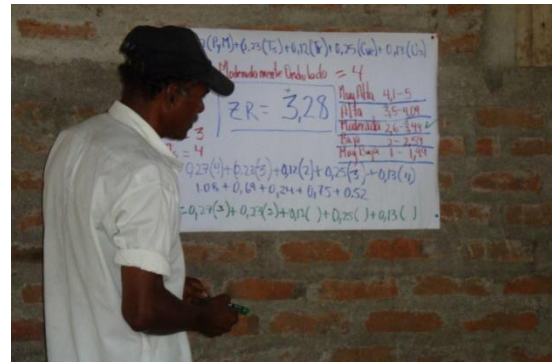 (P,M)+0,23(Ts)+0,12( )+0,25( )+0,13( )
Moderadamente Ondulado = 4
ZR = 3,28
Muy Alta 4,1-5
Alta 3,5-4,09
Moderada 2,6-3,49
Baja 2-2,59
Muy Baja 1-1,99
3
= 4
0,27(4)+0,23(3)+0,12(2)+0,25(3)+0,13(4)
1.08+0,69+0,24+0,75+0.52
=0,27(3)+0,23(2)+0,12( )+0,25( )+0,13( )